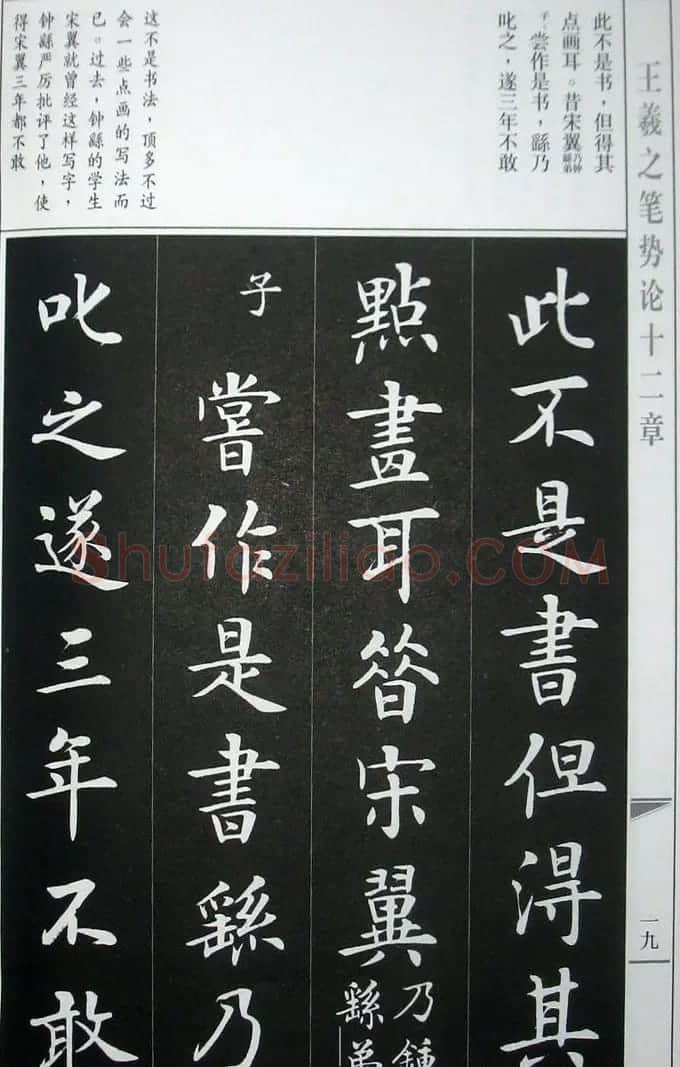 王羲之笔势论十二章
一九
此不是书，但得其
点画耳。昔宋翼乃钟繇弟
子，尝作是书，繇乃
叱之，遂三年不敢
这不是书法，顶多不过
会一些点画的写法而
已。过去，钟繇的学生
宋翼就曾经这样写字，
钟繇严厉批评了他，使
得宋翼三年都不敢
此不是書但得其
點畫耳昝宋翼乃鍾繇弟
子嘗作是書繇乃
叱之遂三年不敢
Shufaziliao.COM